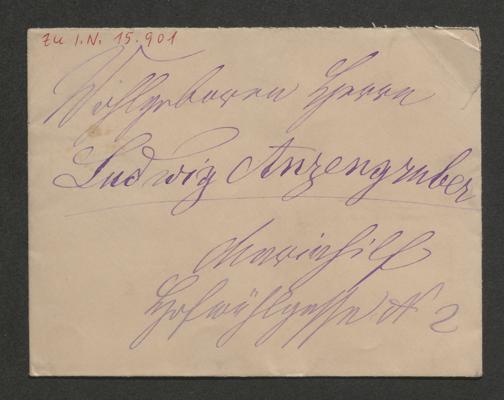 Zu I.N. 15.901
Wohlgeboren Herrn
Ludwig Anzengruber
Mariahilf
Hofmühlgasse N 2